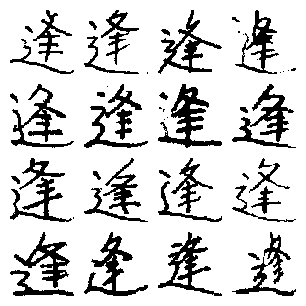 逢逢逢逢
逢逢逢逢
逢逢逢逢
逢逢逢逢